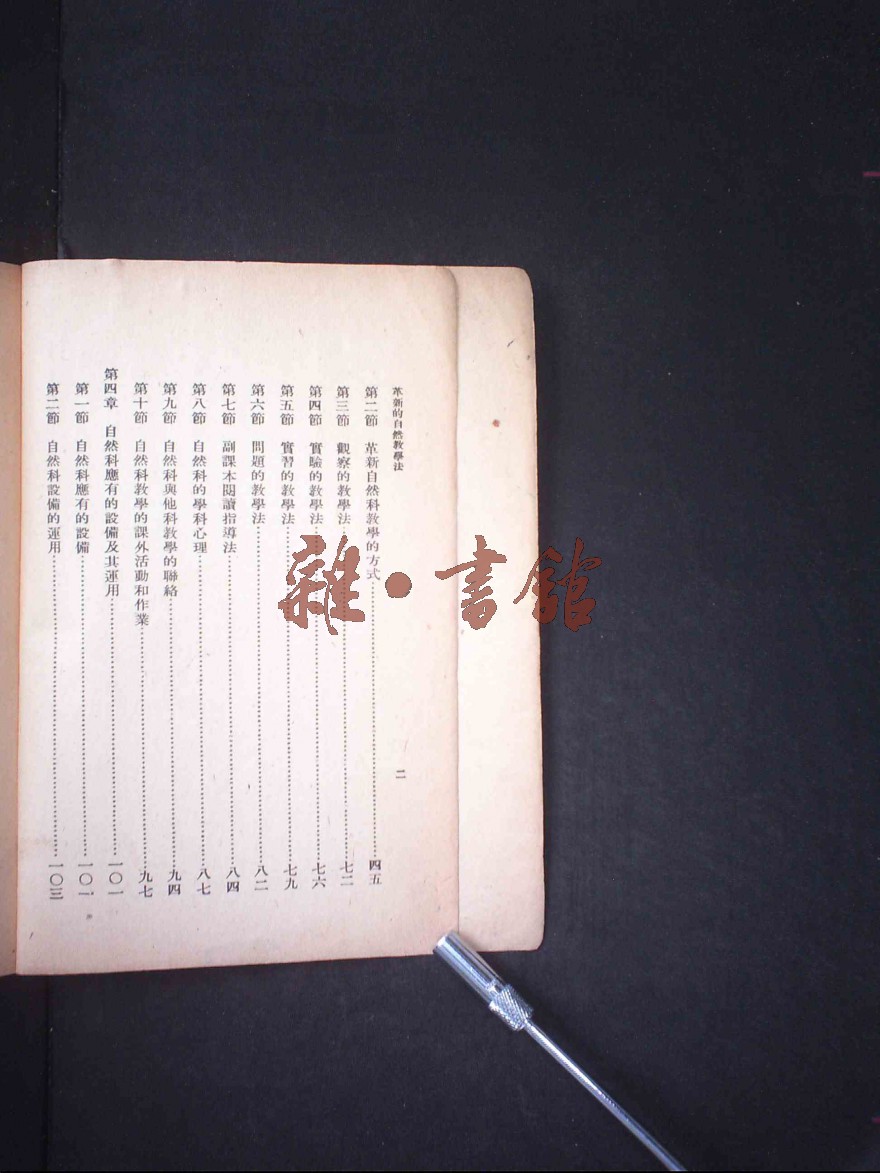 革新的自然教學法
二
第二節 革新自然科教學的方式……四五
第三節 觀察的教學法……七二
第四節 實驗的教學法……七六
第五節 實習的教學法……七九
第六節 問題的教學法……八二
第七節 副課本閱讀指導法……八四
第八節 自然科的學科心理……八七
第九節 自然科與他科教學的聯絡……九四
第十節 自然科教學的課外活動和作業……九七
第四章 自然科應有的設備及其運用……一〇一
第一節 自然科應有的設備……一〇一
第二節 自然科設備的運用……一〇三
雜·書館